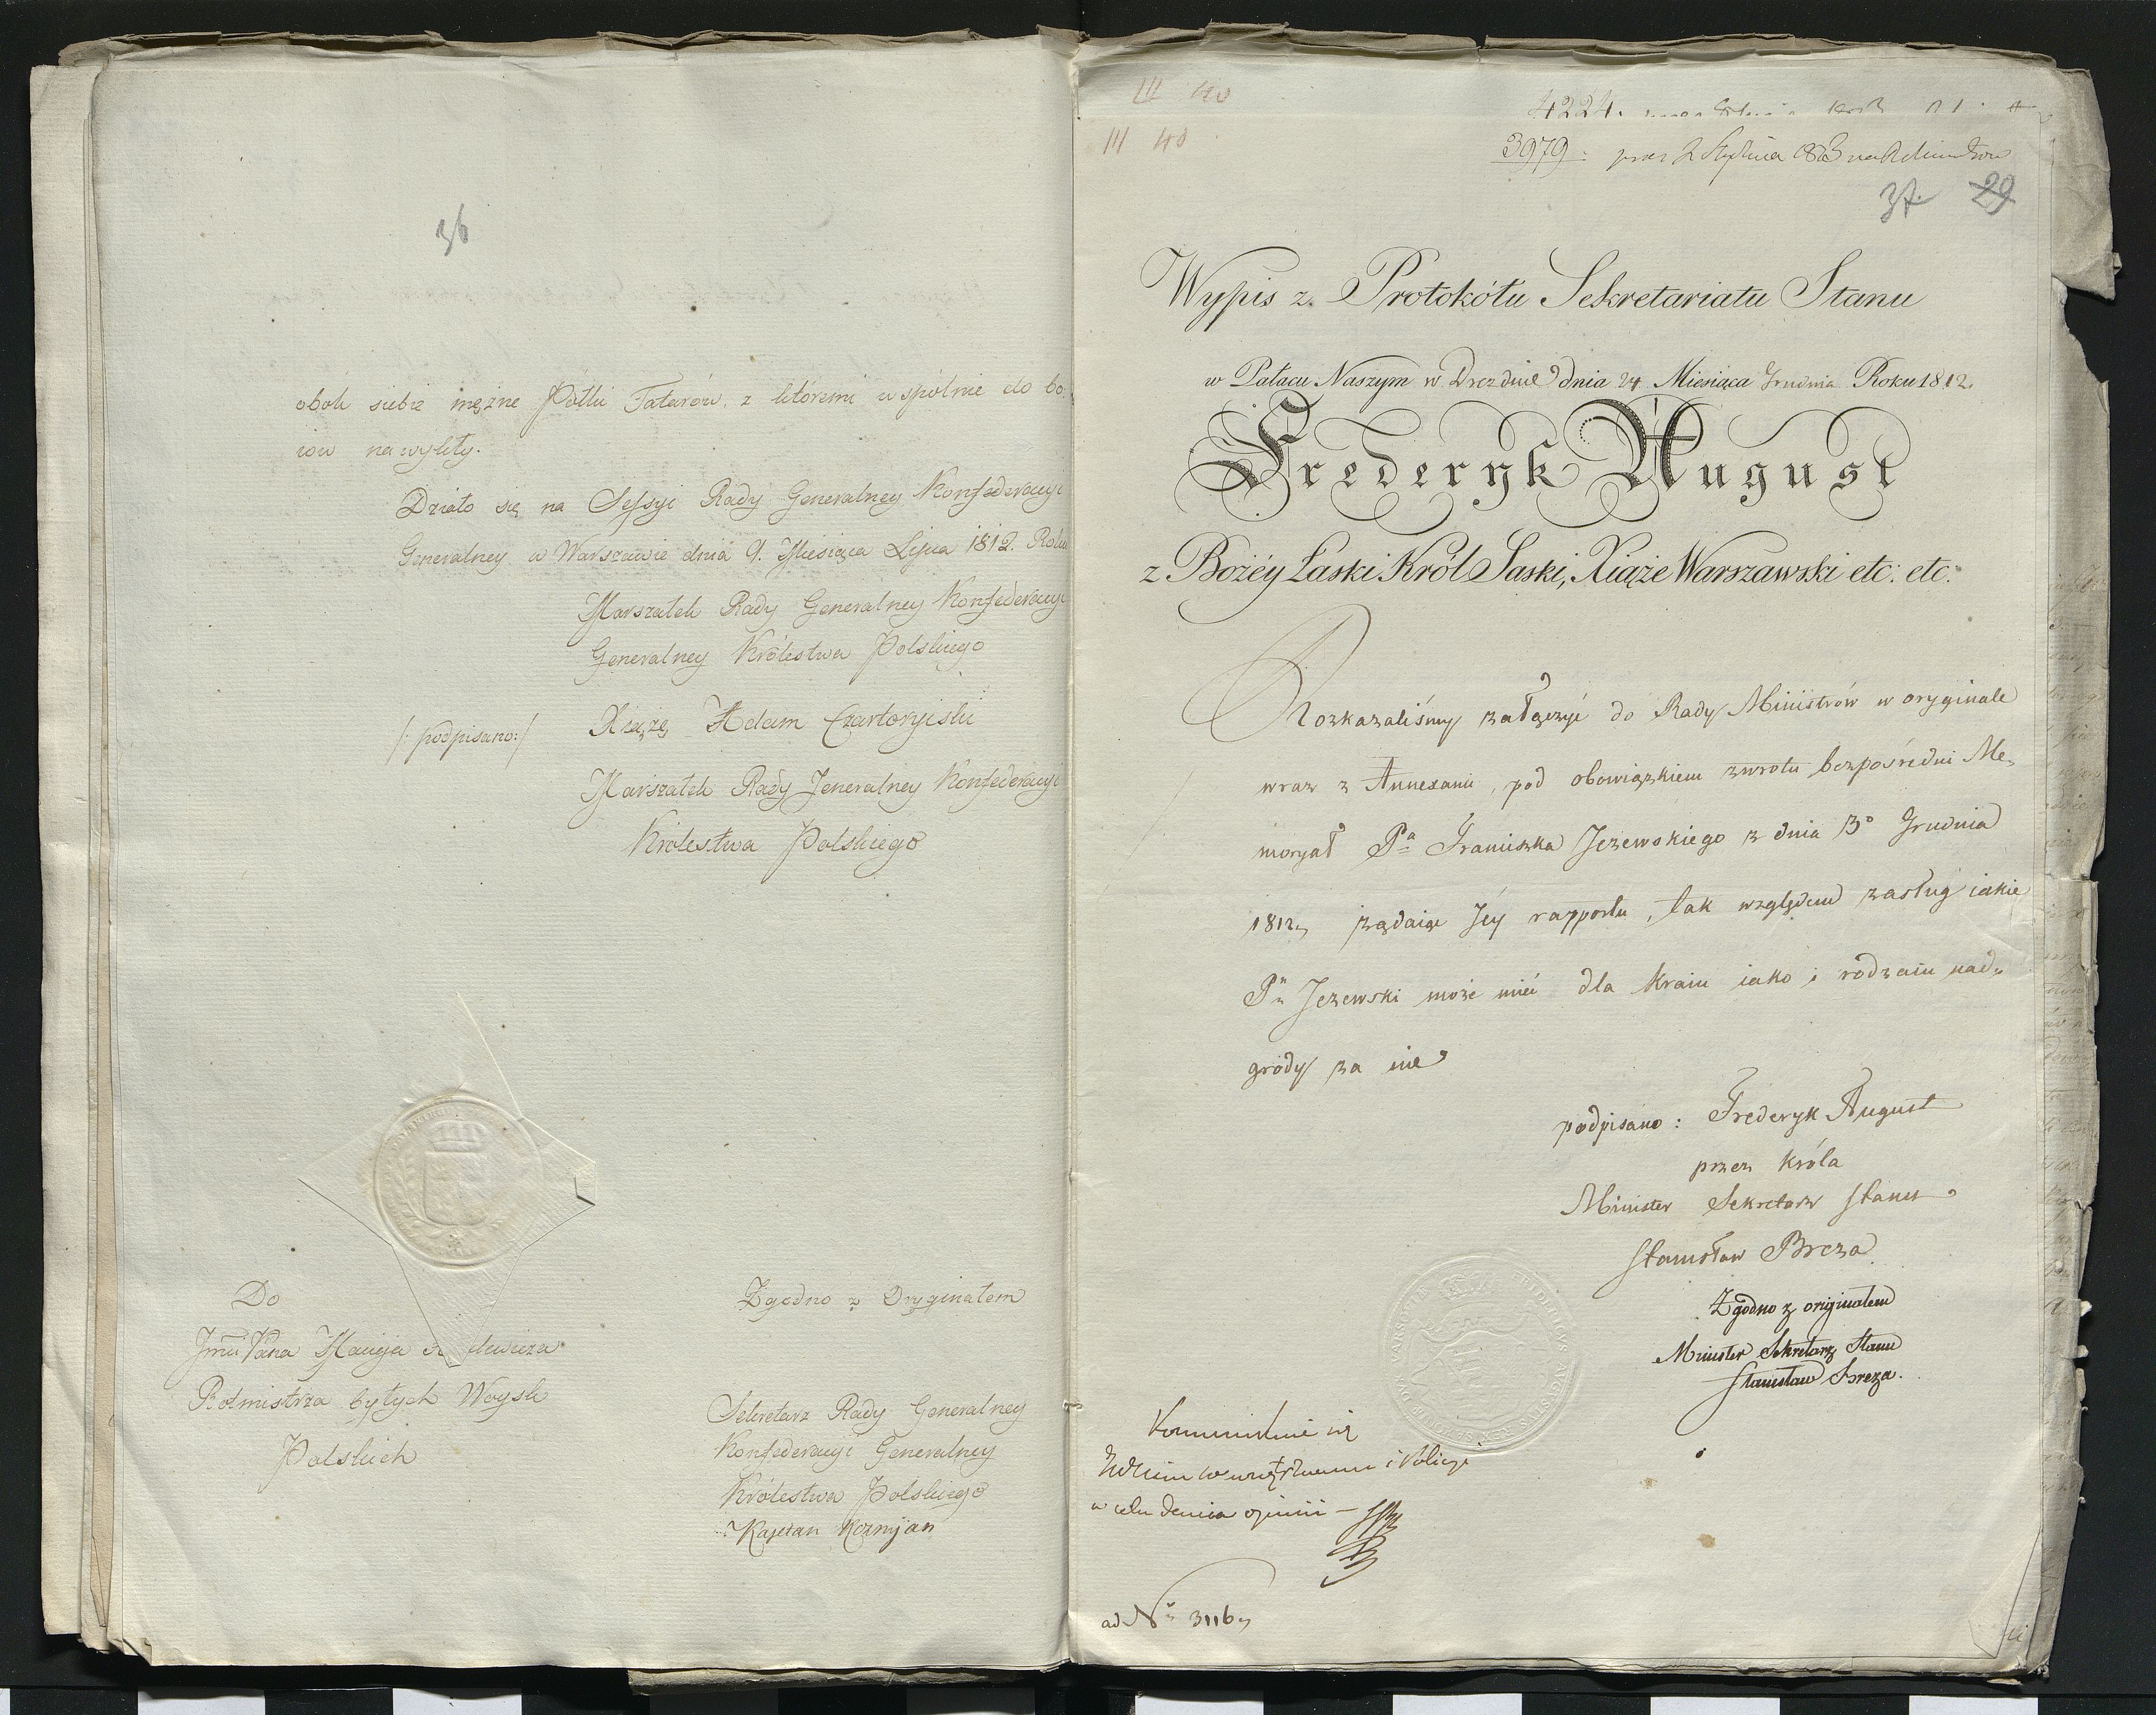 36
obok siebie mężne Półki Tatarów, z któremi wspólnie do bo
iów nawykły.
Działo się na Sessyi Rady Generalney Konfederacyi
Generalney w Warszawie dnia 9. Miesiąca Lipca 1812. Roku
Marszałek Rady Generalney Konfederacyi
Generalney Królestwa Polskiego
/: podpisano:/ Xiążę Adam Czartoryiski
Marszałek Rady Jeneralney Konfederacyi
Królestwa Polskiego
Do
Jmci Pana Macieja
Rotmistrza byłych Woysk
Polskich
Zgodno z Oryginałem
Sekretarz Rady Generalney
Konfederacyi Generalney
Królestwa Polskiego
Kajetan Kozmjan
III 40
4224.
III 40
3979. 2 Stycznia 1813
37. 29
Wypis z Protokółu Sekretariatu Stanu
w Pałacu Naszym w Dreźnie dnia 24 Miesiąca Grudnia Roku 1812.
Frederyk August
z Bożéy Łaski Król Saski, Xiąże Warszawski etc: etc:
Rozkazaliśmy załączyć do Rady Ministrów w oryginale
wraz z Annexami, pod obowiązkiem zwrotu bezpośredni Me,
moryał Pa Franciszka Jezewskiego z dnia 3o Grudnia
1812, żądaiąc Jéy rapportu, tak względem zasług iakie
Pn Jezewski może mieć dla Kraiu iako i rodzaiu nad,
grody za nie
podpisano: Frederyk August
przez Króla
Minister Sekretarz Stanu
Stanisław Breza
Zgodno z originałem
Minister Sekretarz Stanu
Stanisław Breza.
i Policyi
w celu dania opinii —
ad No 3116,